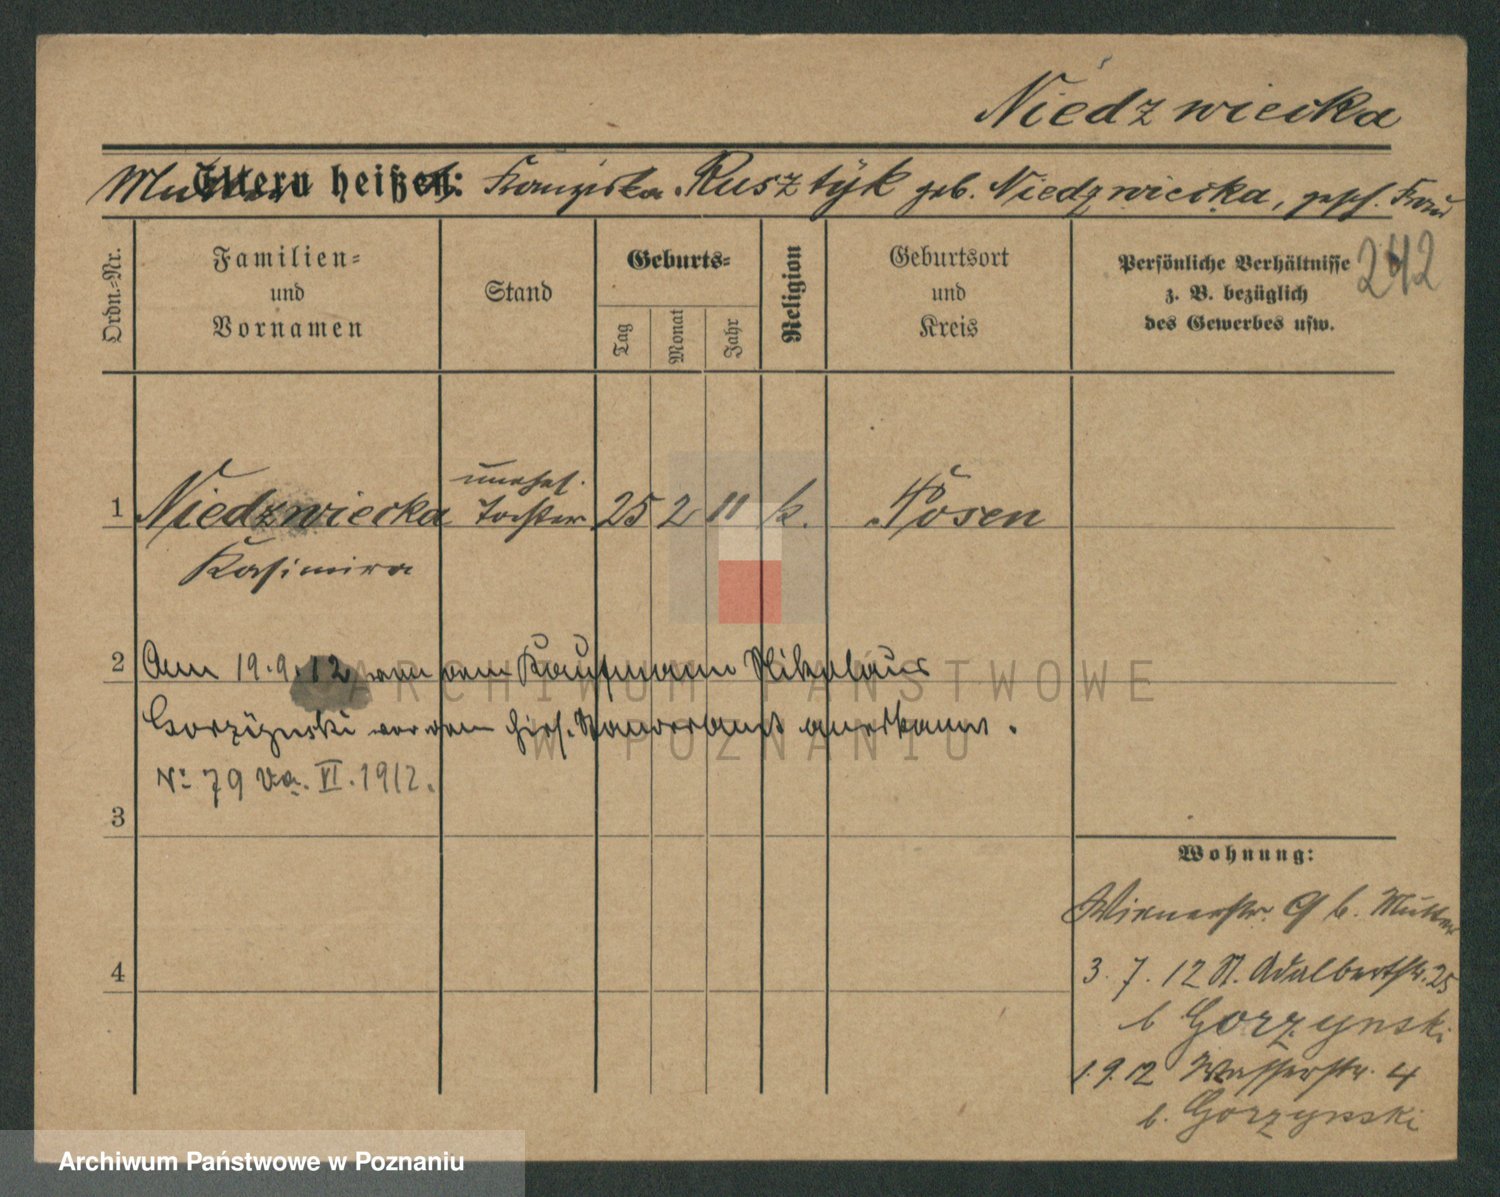 Niedzwiecka
Mutter heißt: Franziska Rusztyk geb. Niedzwiecka, gesch. Frau
242
Ordn.=Nr.
Familien=
und
Vornamen
Stand
Geburts=
Tag
Monat
Jahr
Religion
Geburtsort
und
Kreis
Persönliche Verhältnisse
z. B. bezüglich
des Gewerbes usw.
unehel.
1 Niedzwiecka Tochter 25 2 11 k. Posen
Kasimira
2 Am 19.9.12 von dem Kaufmann Nikolaus
Gorzynski vor dem hies. Standesamt anerkannt.
No 79 Va. VI. 1912.
3
4
Wohnung:
Wienerstr. 9 b. Mutter
3. 7. 12 St. Adalbertstr. 25
b Gorzynski
1. 9. 12 Wasserstr. 4
b. Gorzynski
ARCHIWUM PAŃSTWOWE
W POZNANIU
Archiwum Państwowe w Poznaniu